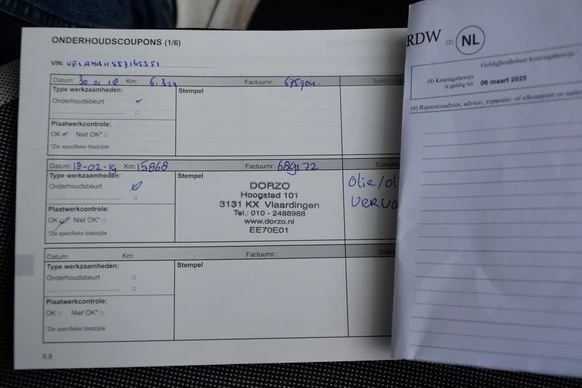 ONDERHOUDSCOUPONS (1/6)
VIN:
Datum: 30 01 18 Km: Factuurnr.: 
Type werkzaamheden:
Stempel
Onderhoudsbeurt
Plaatwerkcontrole:
OK Niet OK*
*Zie specifieke bladzijde
Datum: 18-02-19 Km: 15868 Factuurnr.: 689172
Type werkzaamheden:
Stempel
Onderhoudsbeurt
Plaatwerkcontrole:
OK Niet OK*
*Zie specifieke bladzijde
DORZO
Hoogstad 101
3131 KX Vlaardingen
Tel.: 010 - 2488988
www.dorzo.nl
EE70E01
Olie/
Datum: Km: Factuurnr.:
Type werkzaamheden:
Stempel
Onderhoudsbeurt
Plaatwerkcontrole:
OK Niet OK*
*Zie specifieke bladzijde
6.8
RDW (2) NL
Geldigheidsduur keuringsbewijs
(5) Keuringsbewijs
is geldig tot 06 maart 2025
(6) Reparatieadvies, advies-, reparatie- of afkeurpunt en